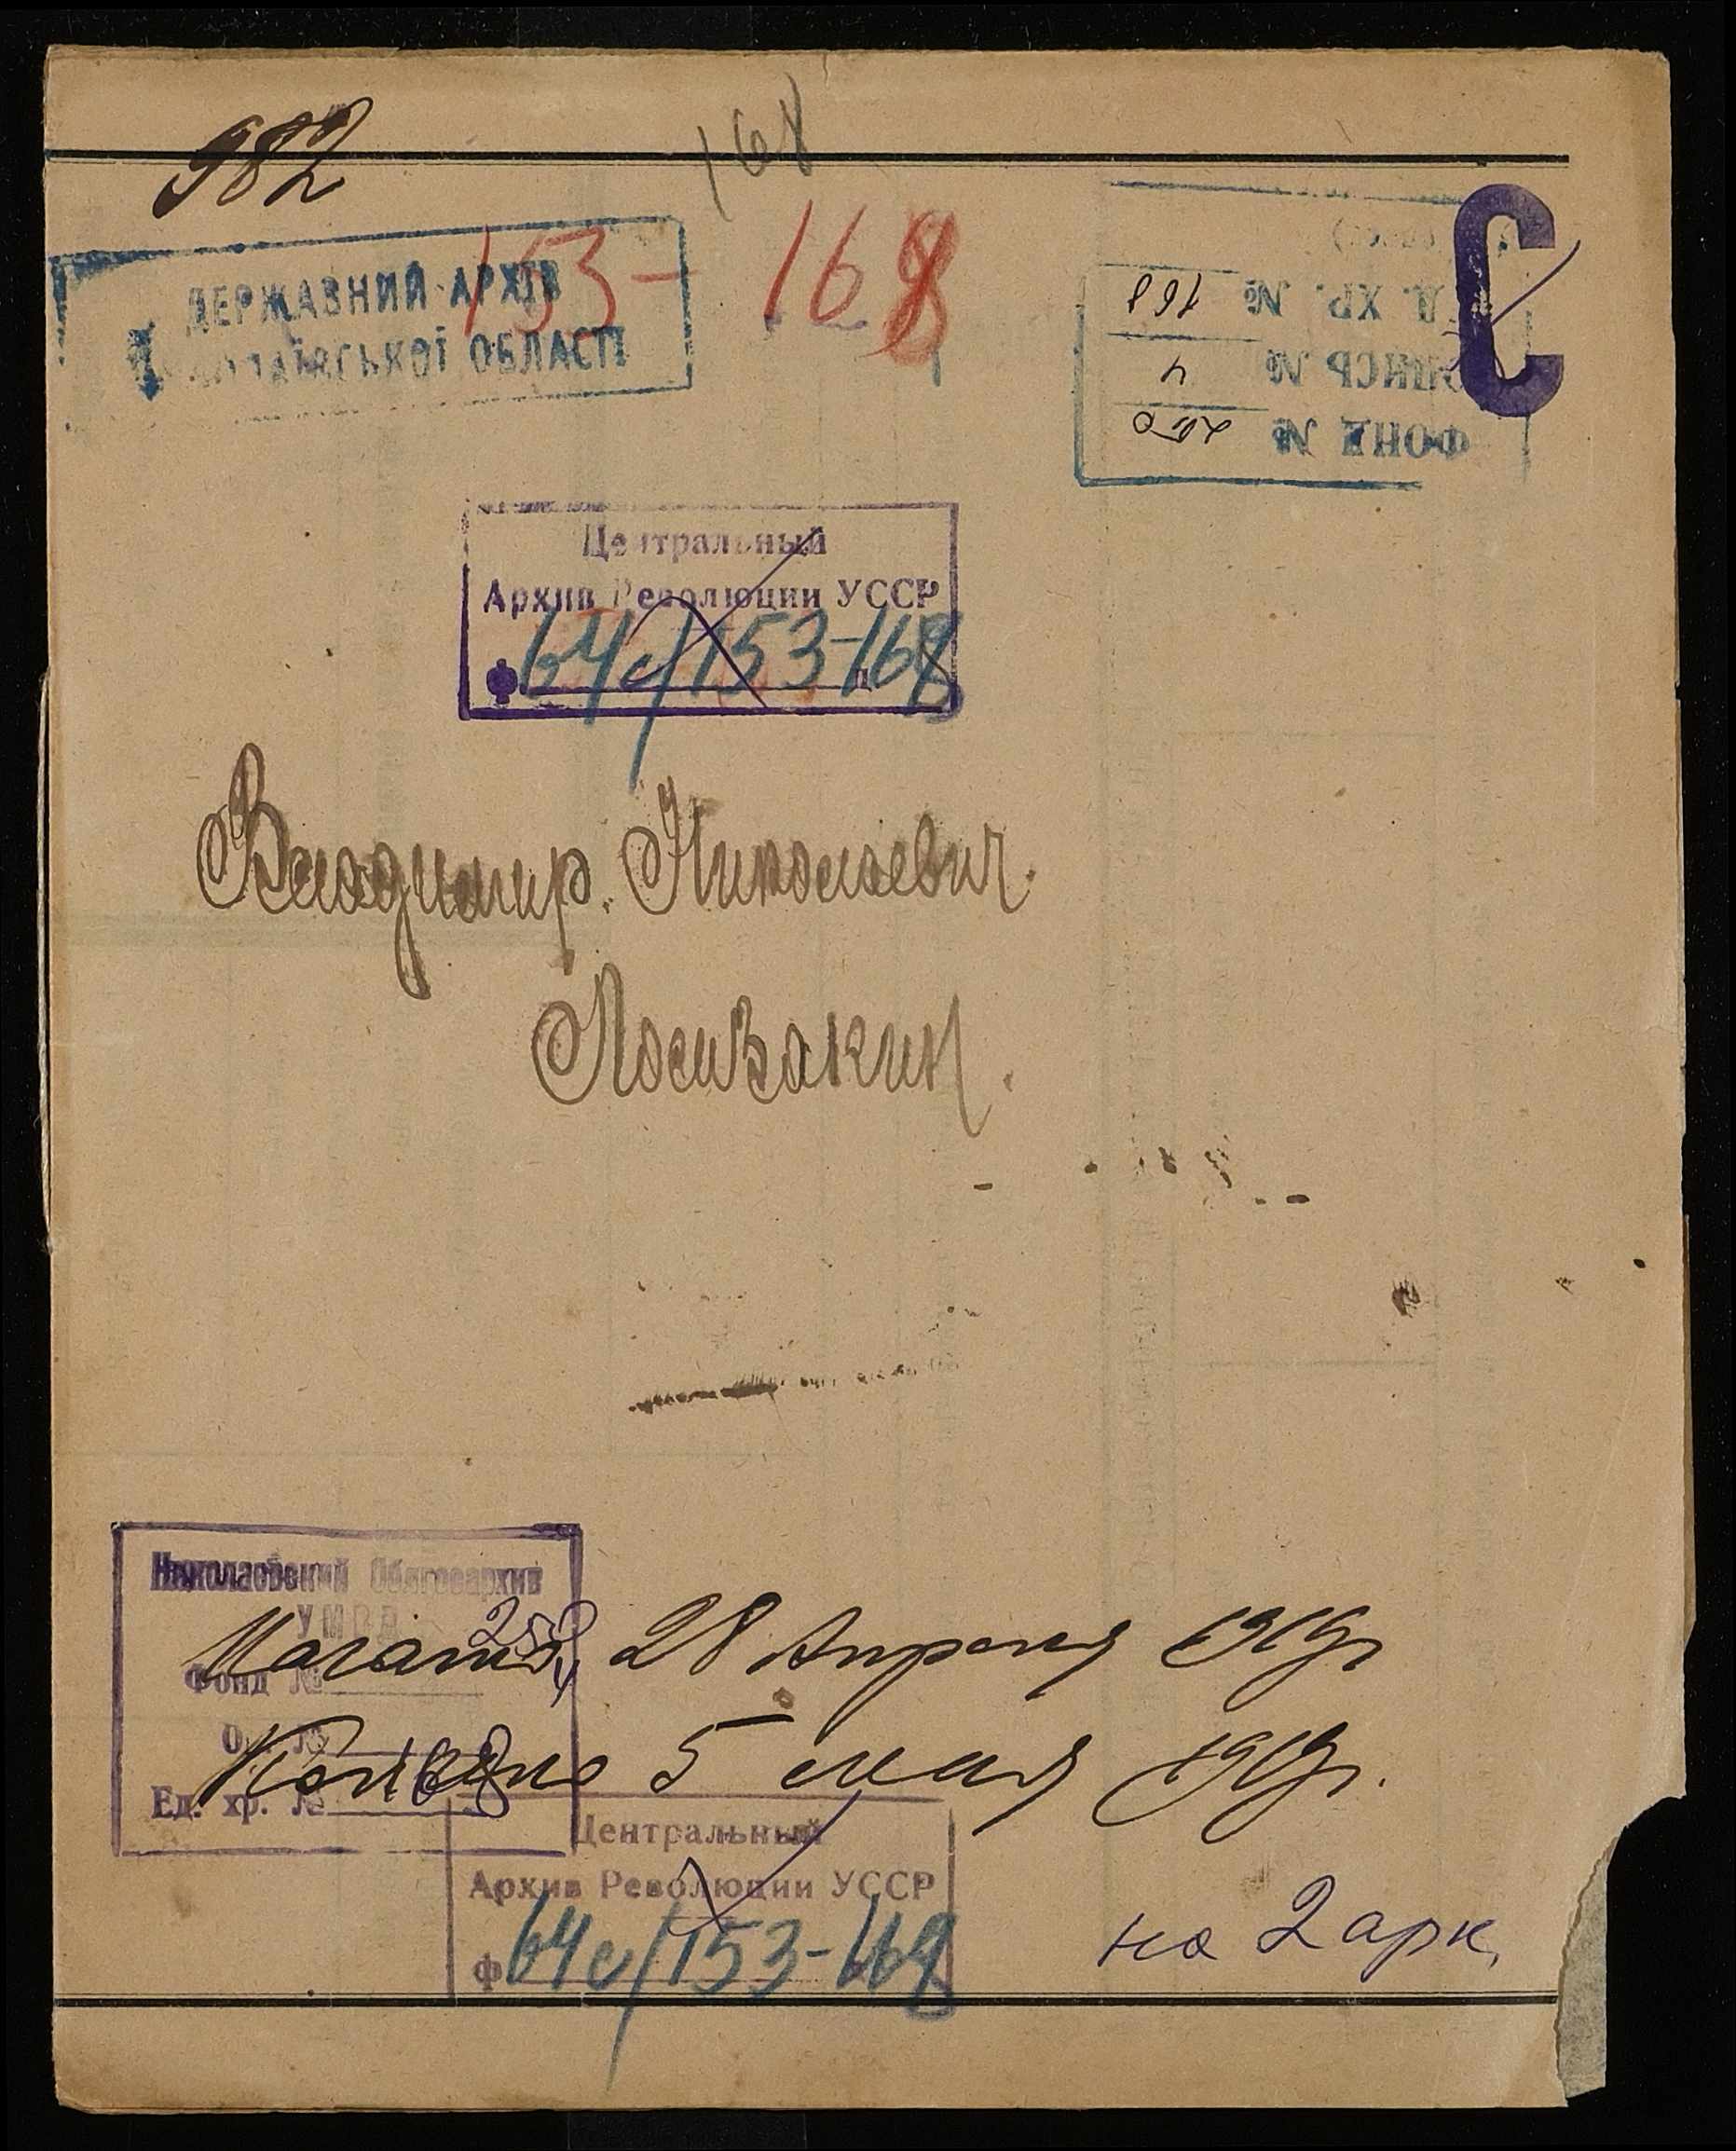 982
168
153- 168
С
ДЕРЖАВНИЙ АРХІВ
МИКОЛАЇВСЬКОЇ ОБЛАСТІ
ФОНД № 250
ОПИСЬ № 4
ЕД. ХР. № 168
Центральный
Архив Революции УССР
Ф 64с/153-168
Владимир Николаевич
Лошвакин.
Николаевский Облгосархив
УМВД
Фонд № 250
Оп. № 4
Ед. хр. № 168
Начато 28 Апреля 1919г.
Кончено 5 мая 1919г.
Центральный
Архив Революции УССР
Ф 64с/153-168
на 2 арк.